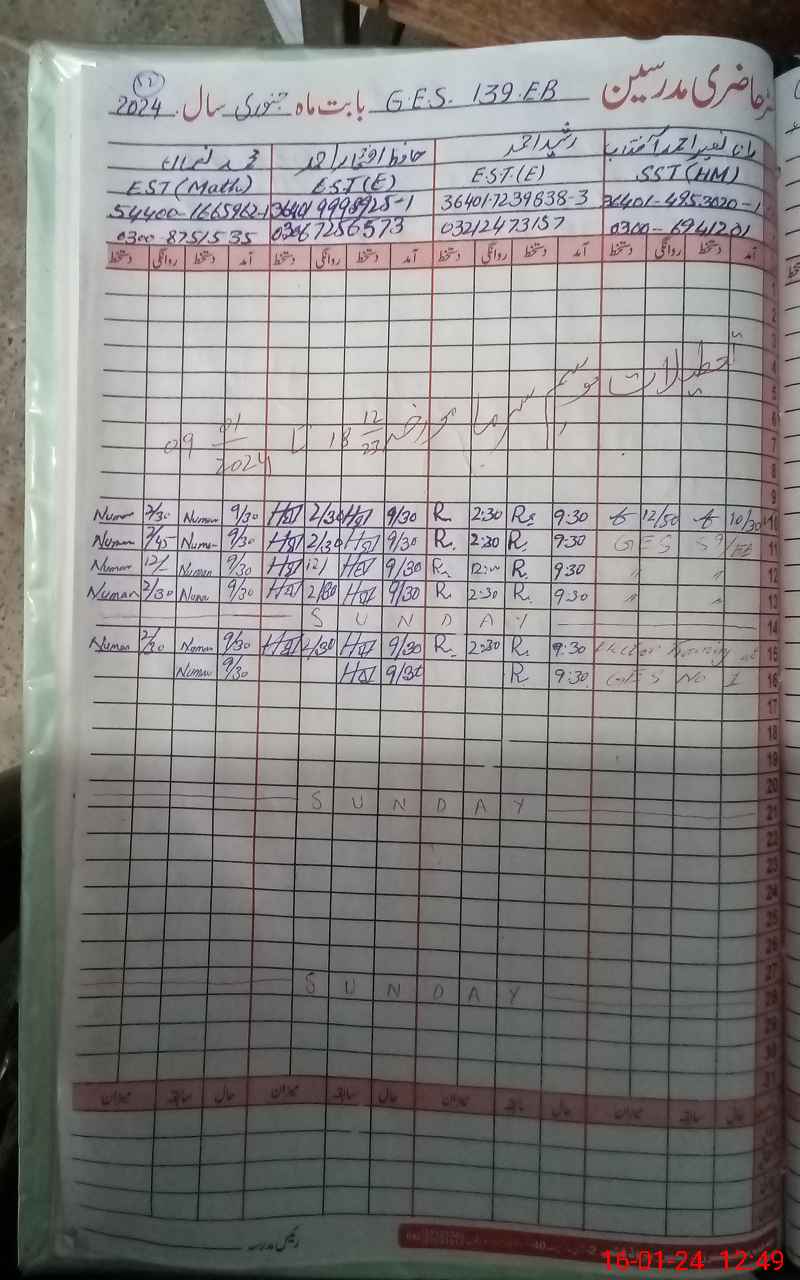 حاضری مدرسین G.E.S. 139.EB بابت ماہ جنوری سال 2024
رشید احمد حافظ افتخار احمد محمد نعمان
SST (HM) E.S.T(E) E.S.T.(E) EST (Math)
36401-4953020-1 36401-7239638-3 54400-1665962-1
0300-6941201 03212473157 03067256573 0300-8751535
آمد دستخط روانگی دستخط آمد دستخط روانگی دستخط آمد دستخط روانگی دستخط آمد دستخط روانگی دستخط
1
2
3
4
5
6
7
8
تعطیلات موسم سرما مورخہ 18 12/23 تا 09 01/2024
Numan 2/30 Numan 9/30 2/30 9/30 R. 2:30 Rs 9:30 12/50 10/30 10
Numan 2/45 Numan 9/30 2/30 9/30 R. 2:30 R. 9:30 GES 59/EB 11
Numan 12/- Numan 9/30 12/ 9/30 R. 12:00 R. 9:30 " " 12
Numan 2/30 Numan 9/30 2/30 9/30 R 2:30 R. 9:30 " " 13
S U N D A Y 14
Numan 2/30 Numan 9/30 2/30 9/30 R. 2:30 R. 9:30 Training at 15
Numan 9/30 9/30 R. 9:30 GES No 1 16
17
18
19
20
S U N D A Y 21
22
23
24
25
26
27
S U N D A Y 28
29
30
31
حال سابقہ میزان حال سابقہ میزان حال سابقہ میزان حال سابقہ میزان
رئیس مدرسہ
16-01-24 12:49